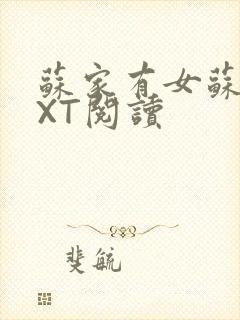 蘇家有女蘇
XT閱讀
斐毓